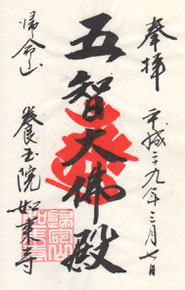 奉拝
平成二九年三月七日
五智大佛殿
帰命山
養玉院如来寺